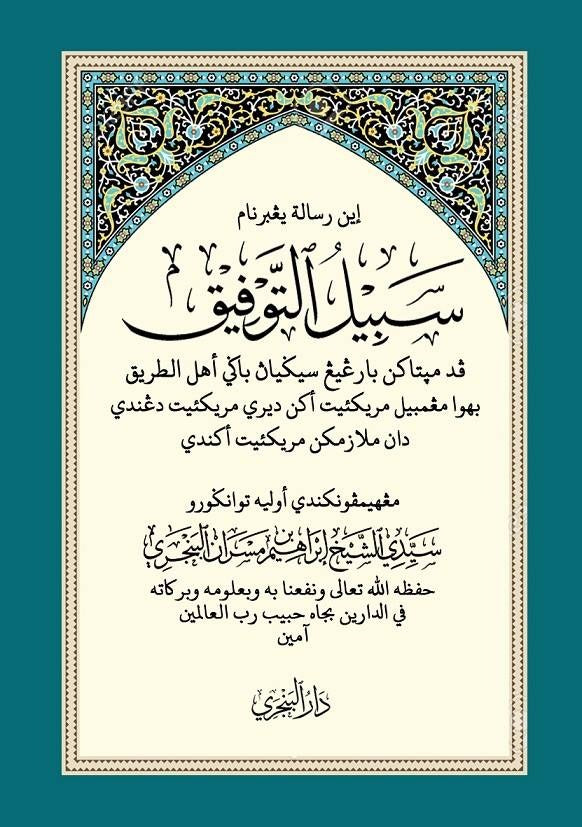 إين رسالة يڠبرنام
سَبِيْلُ ٱلتَّوْفِيْقِ
ڤد مپتاكن بارڠيڠ سيكيان باݢي أهل الطريق
بهوا مڠمبيل مريكئيت أكن ديري مريكئيت دڠندي
دان ملازمكن مريكئيت أكندي
مڠهيمڤونكندي أوليه توانكورو
سَيِّدِي ٱلشَّيْخ إِبْرَاهِيْم بن مَسْرَان ٱلبَنْجَرِي
حفظه الله تعالى ونفعنا به وبعلومه وبركاته
في الدارين بجاه حبيب رب العالمين
آمين
دَارُ ٱلبَنْجَرِي